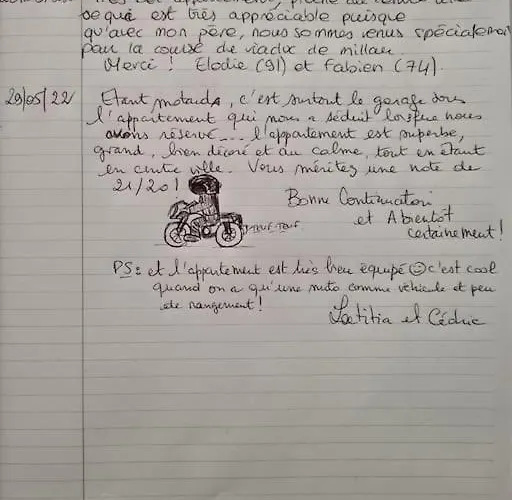 ce qui est très appréciable puisque
qu'avec mon père, nous sommes venus spécialement
pour la course du viaduc de millau.
Merci ! Elodie (91) et Fabien (74).
29/05/22 Etant motards, c'est surtout le garage sous
l'appartement qui nous a séduit lorsque nous
avons réservé... l'appartement est superbe,
grand, bien décoré et au calme, tout en étant
en centre ville. Vous méritez une note de
21/20!
Bonne Continuation
et A bientôt
certainement!
TEUF-TEUF
PS: et l'appartement est très bien équipé ☺ c'est cool
quand on a qu'une moto comme véhicule et peu
de rangement!
Laetitia et Cédric